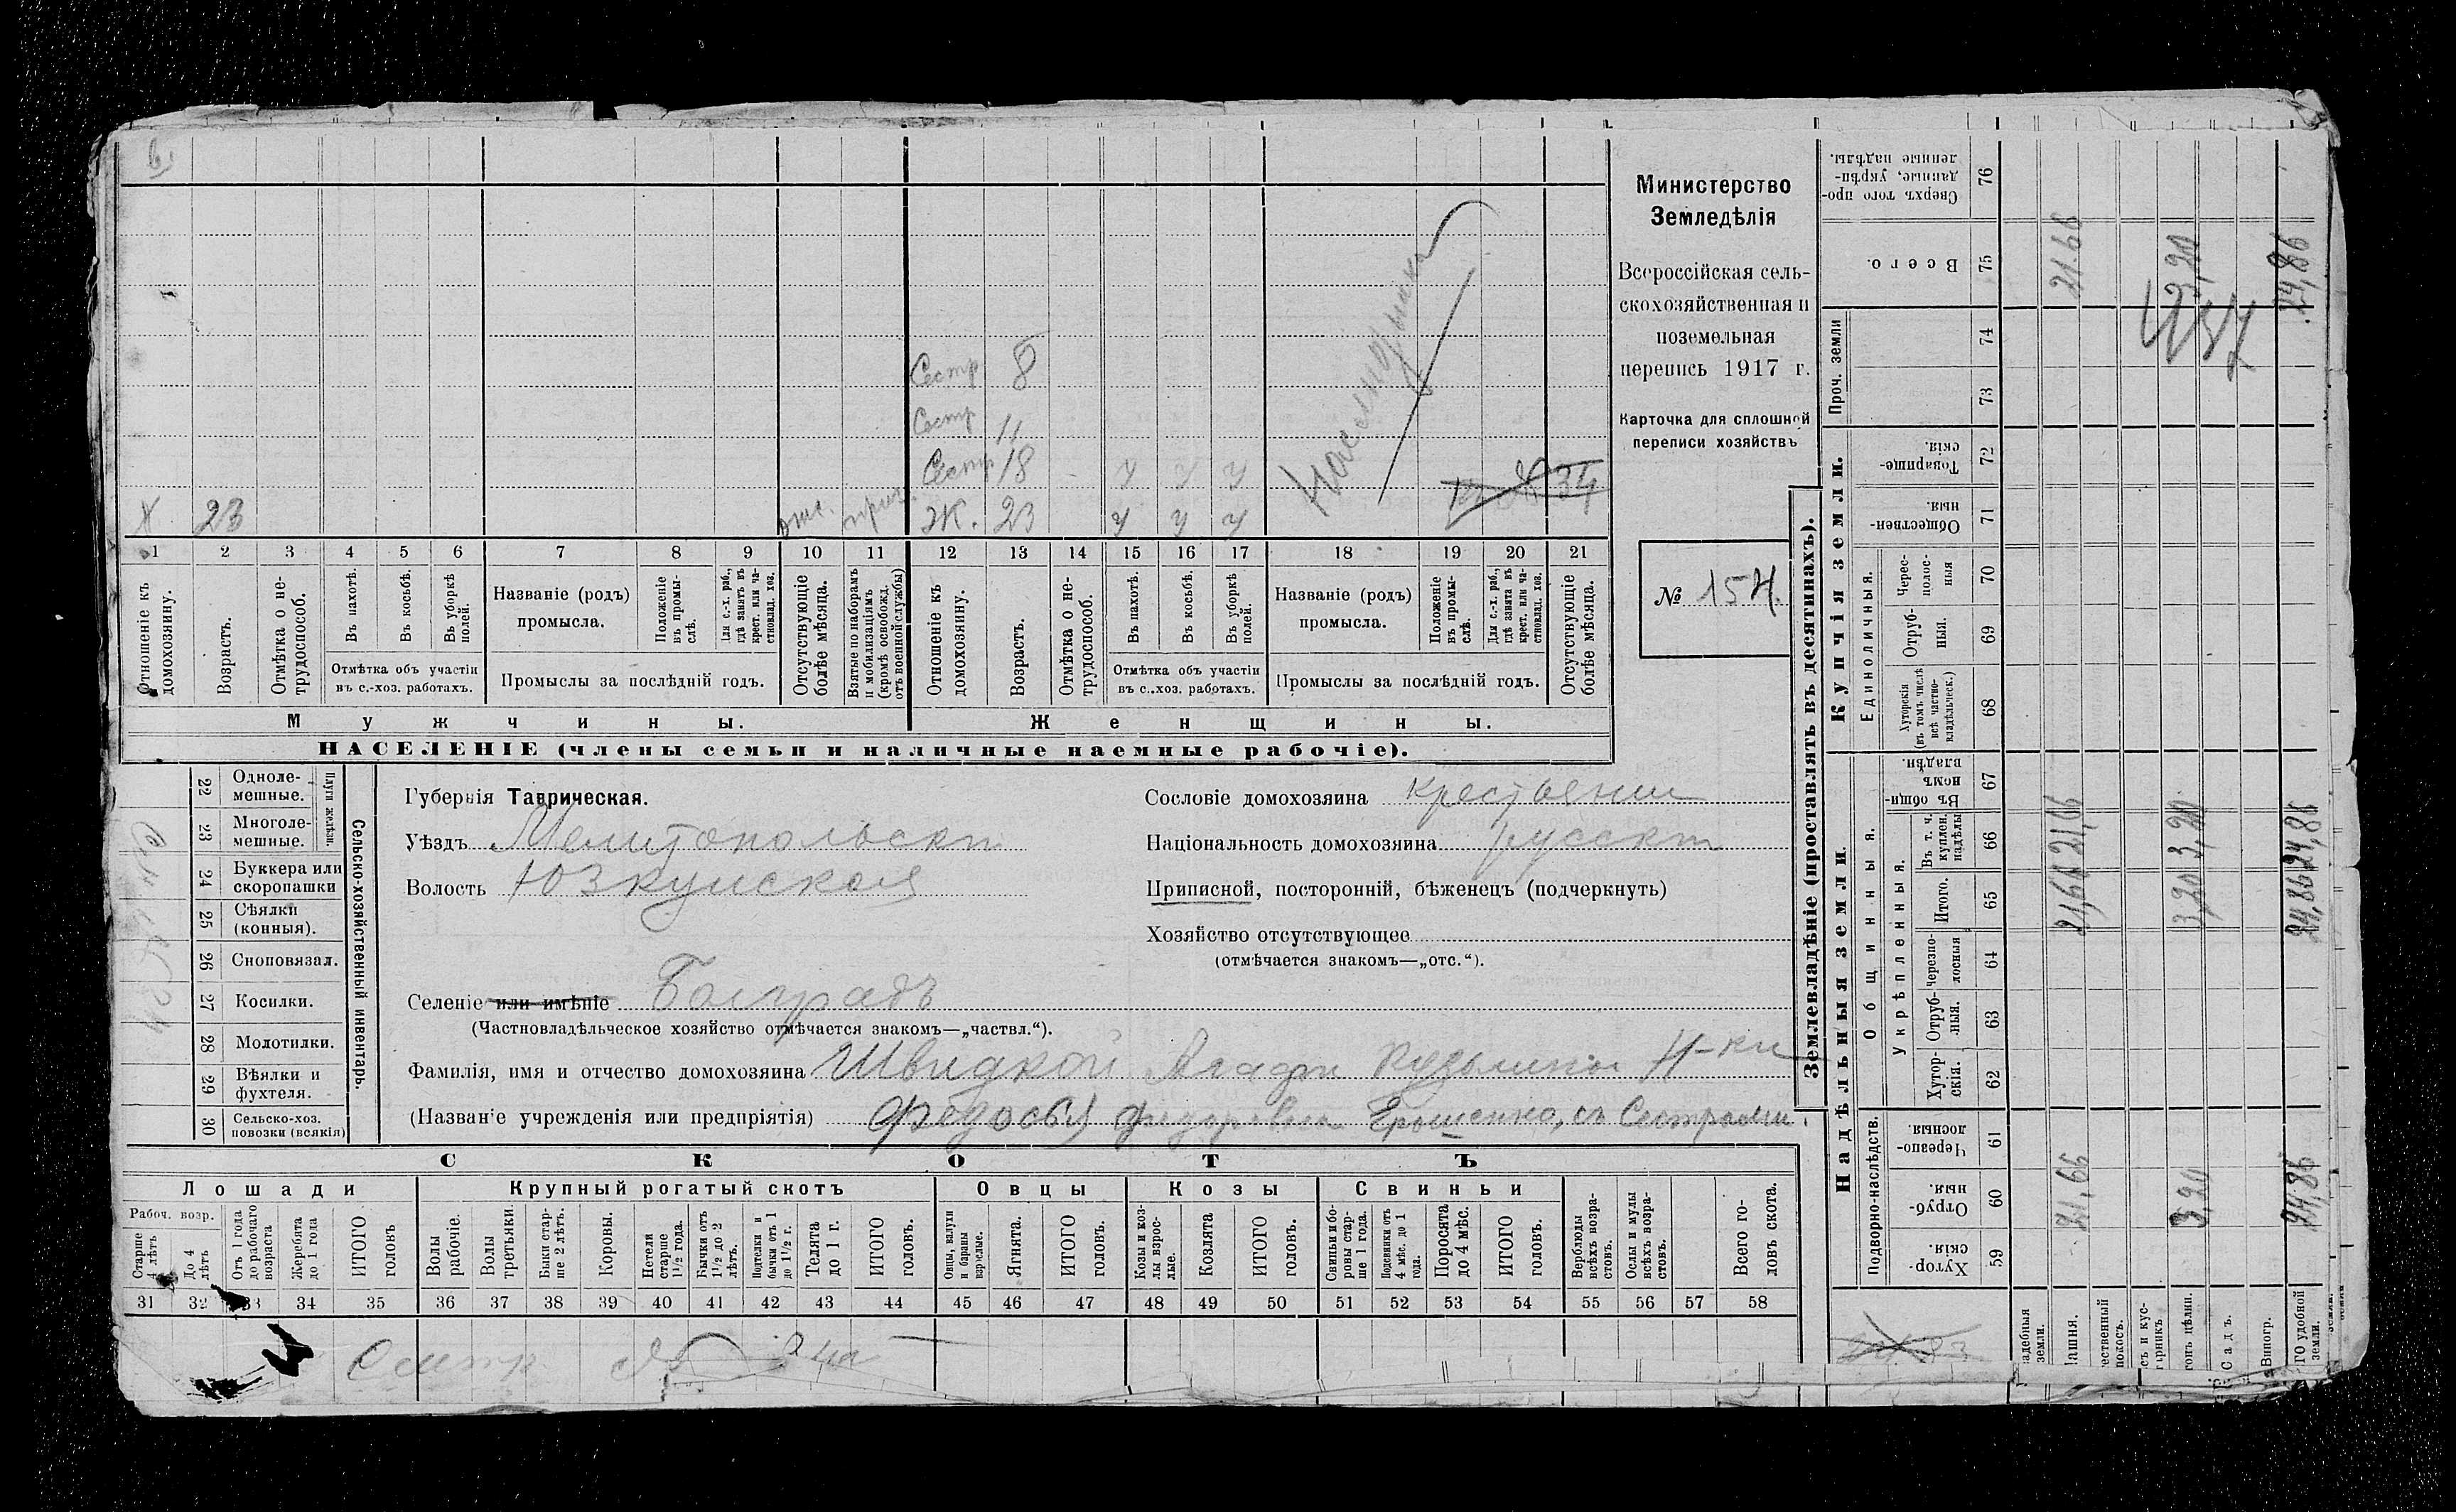 Министерство
Земледѣлія
Всероссійская сель-
скохозяйственная и
поземельная
перепись 1917 г.
Карточка для сплошной
переписи хозяйствъ
№ 154.
Сестр 8
Сестр 11
Сестр 18 у у у
34
X 23 Ж. 23 у у у
1 2 3 4 5 6 7 8 9 10 11 12 13 14 15 16 17 18 19 20 21
Отношеніе къ домохозяину.
Возрастъ.
Отмѣтка о не-трудоспособ.
Въ пахотѣ.
Въ косьбѣ.
Въ уборкѣ полей.
Отмѣтка объ участіи
въ с.-хоз. работахъ.
Названіе (родъ)
промысла.
Положеніе въ промы-слѣ.
Для с.-х. раб., гдѣ занятъ въ крест. или ча-стновлад. хоз.
Промыслы за послѣдній годъ.
Отсутствующіе болѣе мѣсяца.
Взятые по наборамъ и мобилизаціямъ (кромѣ освобожд. отъ военной службы)
Отношеніе къ домохозяину.
Возрастъ.
Отмѣтка о не-трудоспособ.
Въ пахотѣ.
Въ косьбѣ.
Въ уборкѣ полей.
Отмѣтка объ участіи
въ с.-хоз. работахъ.
Названіе (родъ)
промысла.
Положеніе въ промы-слѣ.
Для с.-х. раб., гдѣ занята въ крест. или ча-стновлад. хоз.
Промыслы за послѣдній годъ.
Отсутствующіе болѣе мѣсяца.
Мужчины. Женщины.
НАСЕЛЕНІЕ (члены семьи и наличные наемные рабочіе).
22 Одноле-мешные.
23 Многоле-мешные.
Плуги желѣзн.
24 Буккера или скоропашки
25 Сѣялки (конныя).
26 Сноповязал.
27 Косилки.
28 Молотилки.
29 Вѣялки и фухтеля.
30 Сельско-хоз. повозки (всякія)
Сельско-хозяйственный инвентарь.
Губернія Таврическая.
Уѣздъ Мелитопольскій
Волость Юзкуйская
Селеніе или имѣніе Болградъ
(Частновладѣльческое хозяйство отмѣчается знакомъ—„частвл.“).
Фамилія, имя и отчество домохозяина Швидкой Агафи Кузьмины Н-ки
(Названіе учрежденія или предпріятія) Федосья Федоровна Ерошенко, съ Сестрами
Сословіе домохозяина крестьянин
Національность домохозяина русскій
Приписной, посторонній, бѣженецъ (подчеркнуть)
Хозяйство отсутствующее
(отмѣчается знакомъ—„отс.“).
СКОТЪ
Лошади Крупный рогатый скотъ Овцы Козы Свиньи
Рабоч. возр.
Старше 4 лѣтъ
До 4 лѣтъ
Отъ 1 года до рабочаго возраста
Жеребята до 1 года
ИТОГО головъ
Волы рабочіе.
Волы третьяки.
Быки стар-ше 2 лѣтъ.
Коровы.
Нетели старше 1½ года.
Бычки отъ 1½ до 2 лѣтъ.
Подтелки и бычки отъ 1 до 1½ г.
Телята до 1 г.
ИТОГО головъ.
Овцы, валухи и бараны взрослые.
Ягнята.
ИТОГО головъ.
Козы и коз-лы взрос-лые.
Козлята
ИТОГО головъ.
Свиньи и бо-ровы стар-ше 1 года.
Подсвинки отъ 4 мѣс. до 1 года.
Поросята до 4 мѣс.
ИТОГО головъ.
Верблюды всѣхъ возра-стовъ.
Ослы и мулы всѣхъ возра-стовъ.
Всего го-ловъ скота.
31 32 33 34 35 36 37 38 39 40 41 42 43 44 45 46 47 48 49 50 51 52 53 54 55 56 57 58
Землевладѣніе (проставлять въ десятинахъ).
Сверхъ того про-данные, укрѣп-ленные надѣлы. 76
Всего. 75 21.66 3,20 24,86
Проч. земли 74 73
Купчія земли.
Товарище-скія. 72
Обществен-ныя. 71
Единоличныя.
Черес-полос-ныя 70
Отруб-ныя. 69
Хуторскія (въ томъ числѣ всѣ частно-владѣльческ.) 68
Надѣльныя земли.
Общинныя.
Въ общин-номъ владѣн. 67
Укрѣпленныя.
Въ т. ч. куплен. надѣлы 66 21,66 3,20 24,86
Итого. 65 21,66 3,20 24,86
Черезпо-лосныя 64
Отруб-ныя. 63
Хутор-скія. 62
Подворно-наслѣдств.
Черезпо-лосныя. 61
Отруб-ныя. 60 21,66 3,20 24,86
Хутор-скія. 59
адебныя земли.
ашня.
ественный покосъ.
съ и кус-тарникъ.
гонъ цѣлин.
Садъ.
Виногр.
ГО удобной земли.